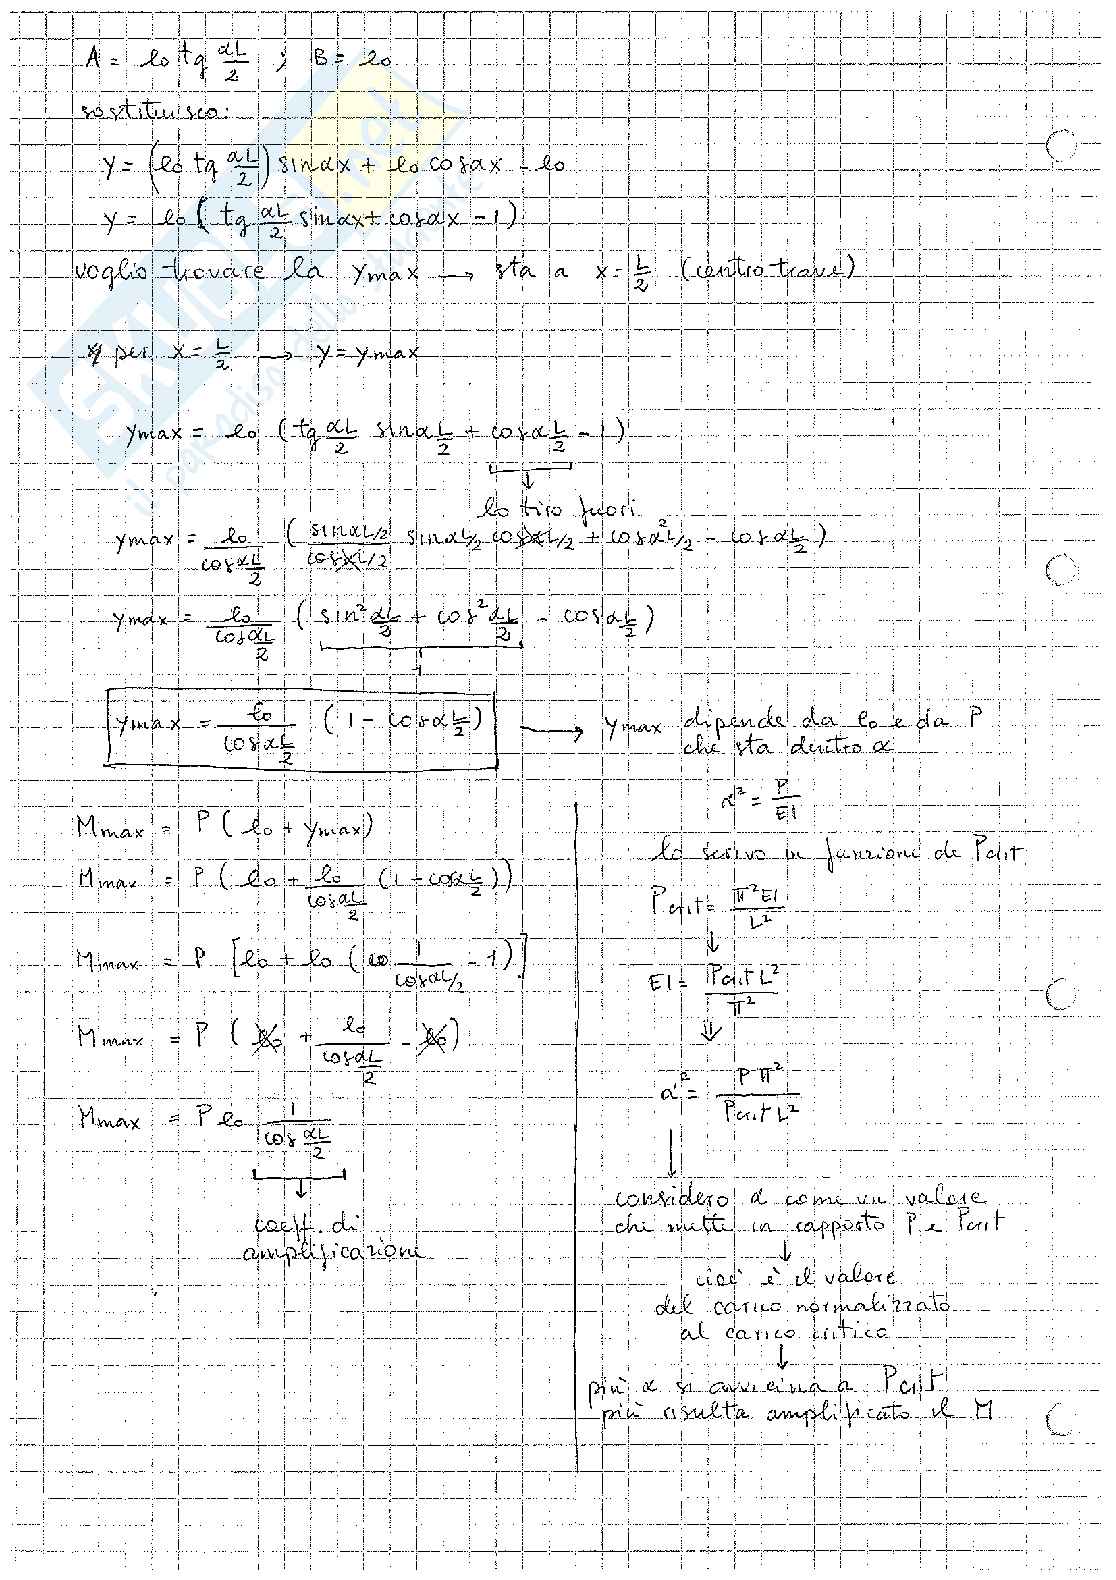 A = lo tg αL/2 ; B = lo
sostituisco:
y = (lo tg αL/2) sinαx + lo cosαx - lo
y = lo ( tg αL/2 sinαx + cosαx - 1)
voglio trovare la ymax → sta a x = L/2 (centro trave)
per x = L/2 → y = ymax
ymax = lo (tg αL/2 sinα L/2 + cosα L/2 - 1)
lo tiro fuori
ymax = lo/cosαL/2 ( sinαL/2 / cosαL/2 sinαL/2 cosαL/2 + cosα²L/2 - cosαL/2 )
ymax = lo/cosαL/2 ( sin² αL/2 + cos² αL/2 - cosαL/2 )
ymax = lo/cosαL/2 ( 1 - cosαL/2 ) → ymax dipende da lo e da P
che sta dentro α
α² = P/EI
Mmax = P ( lo + ymax)
Mmax = P ( lo + lo/cosαL/2 (1 - cosαL/2 ))
Mmax = P [lo + lo ( 1/cosαL/2 - 1)]
Mmax = P ( lo + lo/cosαL/2 - lo)
Mmax = P lo 1/cos αL/2
coeff. di
amplificazione
lo scrivo in funzione de Pcrit
Pcrit = π²EI/L²
EI = Pcrit L²/π²
α² = P π²/Pcrit L²
considero α come un valore
che mette in rapporto P e Pcrit
cioè è il valore
del carico normalizzato
al carico critico
più α si avvicina a Pcrit
più risulta amplificato il M